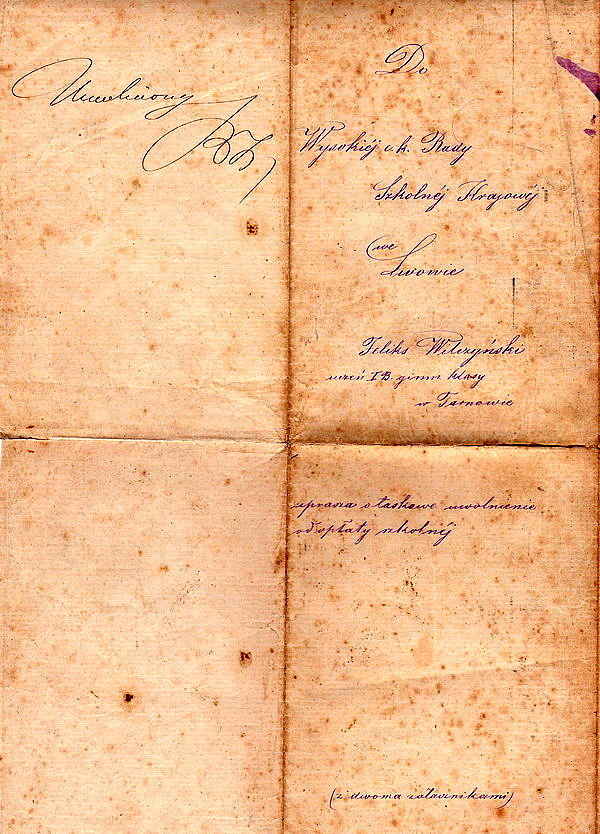 Uwolniony
Do
Wysokiéj c.k. Rady
Szkolnéj Krajowéj
we
Lwowie
Feliks Wilczyński
uczeń I B. gimn klasy
w Tarnowie
uprasza o łaskawe uwolnienie
od opłaty szkolnéj
(z dwoma załącznikami)